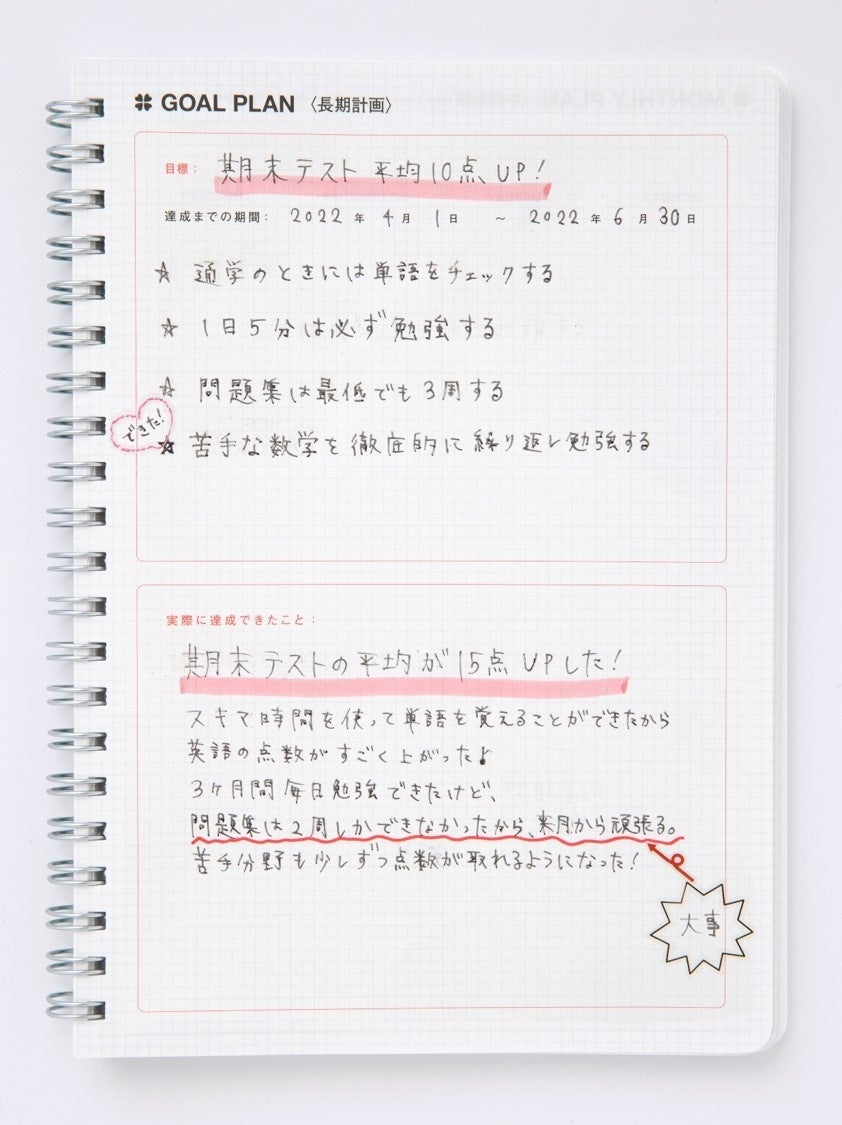 GOAL PLAN 〈長期計画〉
目標: 期末テスト平均10点UP!
達成までの期間: 2022 年 4 月 1 日 ~ 2022 年 6 月 30 日
☆ 通学のときには単語をチェックする
☆ 1日5分は必ず勉強する
☆ 問題集は最低でも3周する
できた!
☆ 苦手な数学を徹底的に繰り返し勉強する
実際に達成できたこと:
期末テストの平均が15点UPした!
スキマ時間を使って単語を覚えることができたから
英語の点数がすごく上がった♪
3ヶ月間毎日勉強できたけど、
問題集は2周しかできなかったから、来月から頑張る。
苦手分野も少しずつ点数が取れるようになった!
大事